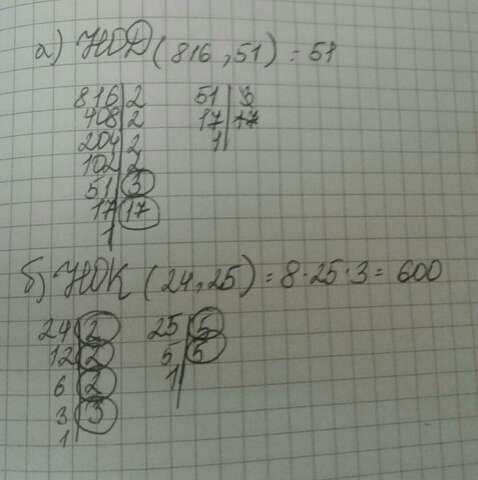 а) НОД (816, 51) = 51
816 | 2 51 | 3
408 | 2 17 | 17
204 | 2 1
102 | 2
51 | 3
17 | 17
1
б) НОК (24, 25) = 8·25·3 = 600
24 | 2 25 | 5
12 | 2 5 | 5
6 | 2 1
3 | 3
1